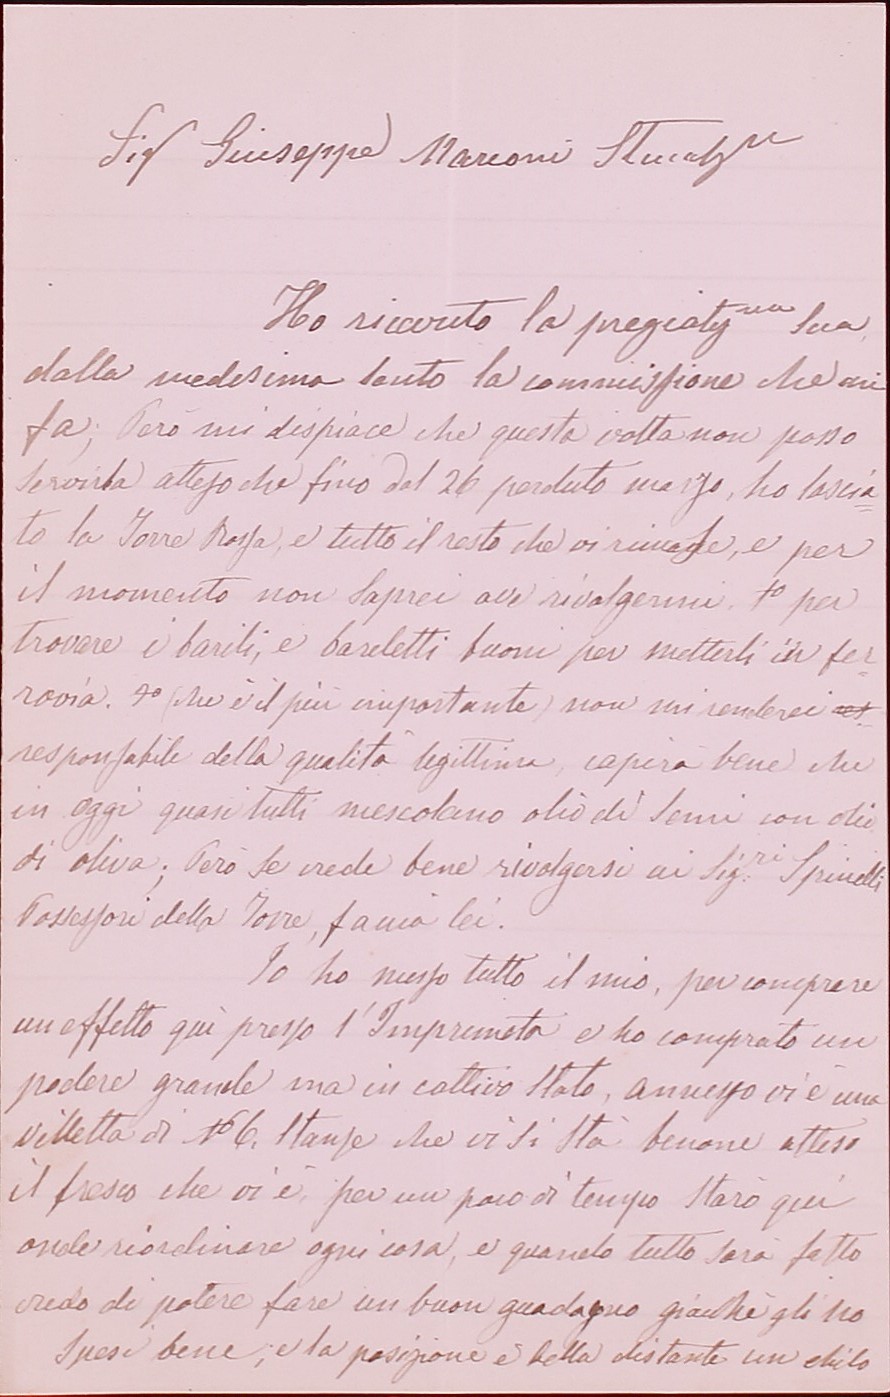 Sig Giuseppe Marconi Stimatiss
Ho ricevuto la pregiatissma Sua
dalla medesima sento la commissione che mi
fa; Però mi dispiace che questa volta non posso
servirla atteso che fino dal 26 perduto marzo, ho lascia=
to la Torre Rossa, e tutto il resto che vi rimase, e per
il momento non saprei ove rivolgermi. 1º per
trovare i barili, e bareletti buoni per metterli in fer=
rovia. 2º (che è il più importante) non mi renderei
responsabile della qualità legittima, capirà bene che
in oggi quasi tutti mescolano olio di semi con olio
di oliva; Però se crede bene rivolgersi ai Sig.ri Spinelli
Possessori della Torre, faccia lei.
Io ho messo tutto il mio, per comprare
un effetto quì presso l'Impruneta e ho comprato un
podere grande ma in cattivo stato, annesso vi è una
villetta di Nº 6. Stanze che vi si stà benone atteso
il fresco che vi è, per un poco di tempo starò quì
onde riordinare ogni cosa, e quando tutto sarà fatto
credo di potere fare un buon guadagno giacchè gli ho
spesi bene; e la posizione è bella distante un chilo